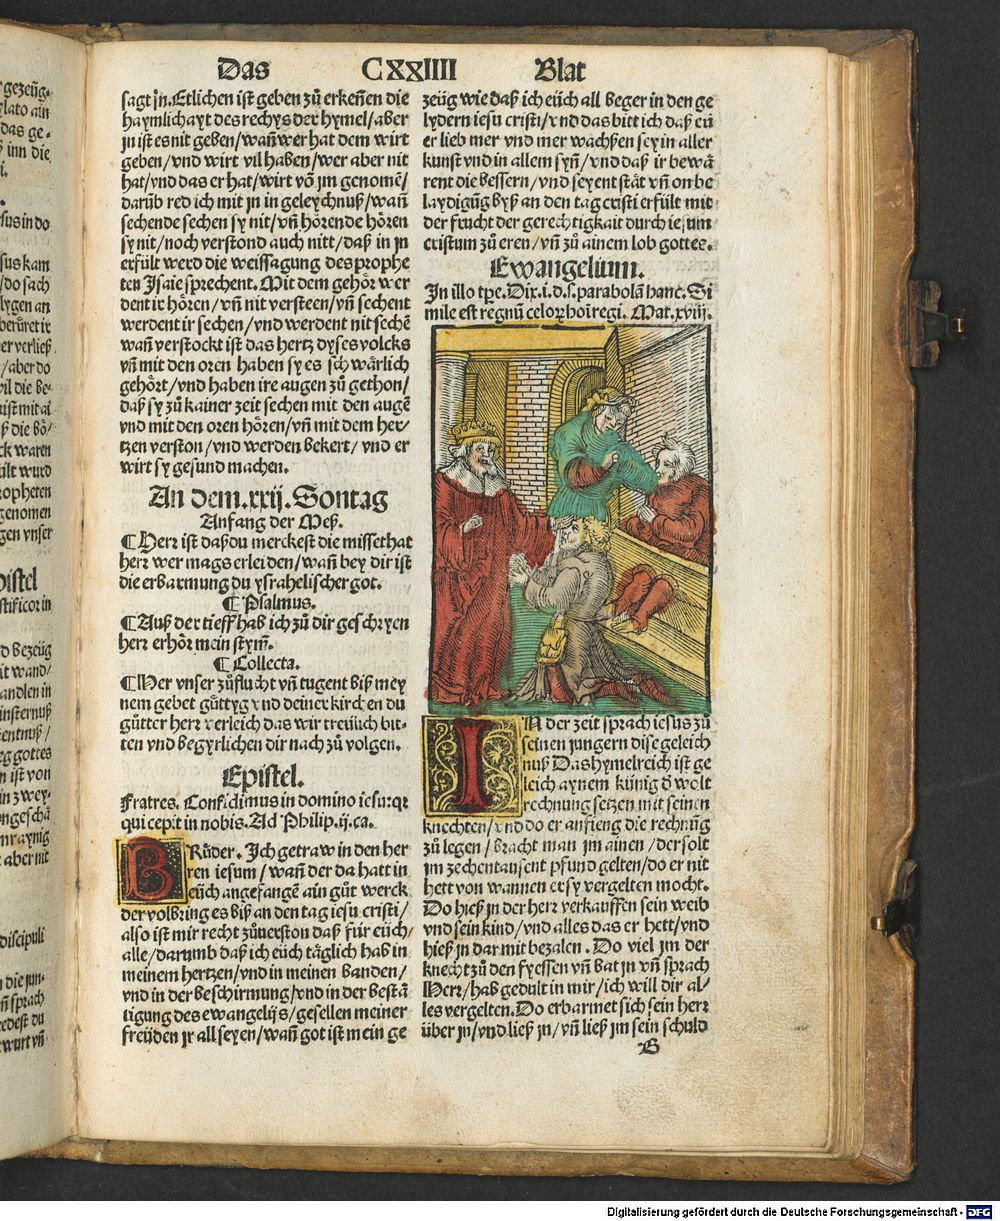 Das CXXIIII Blat
sagt jn. Etlichen ist geben zů erkeñen die
haymlichayt des rechys der hymel/aber
jn ist es nit geben/wañ wer hat dem wirt
geben/vnd wirt vil haben/wer aber nit
hat/vnd das er hat/wirt võ jm genomẽ/
darũb red ich mit jn in geleychnuß/wañ
sechende sechen sy nit/vñ hörende hören
sy nit/noch verstond auch nitt/daß in jn
erfült werd die weissagung des prophe
ten Isaie sprechent. Mit dem gehör wer
dent ir hören/vñ nit versteen/vñ sechent
werdent ir sechen/vnd werdent nit sechẽ
wañ verstockt ist das hertz dyses volcks
vñ mit den oren haben sy es schwärlich
gehört/vnd haben ire augen zů gethon/
daß sy zů kainer zeit sechen mit den augẽ
vnd mit den oren hören/vñ mit dem her-
tzen verston/vnd werden bekert/vnd er
wirt sy gesund machen.
An dem .xxij. Sontag
Anfang der Meß.
¶ Herr ist daß du merckest die missethat
herr wer mags erleiden/wañ bey dir ist
die erbarmung du ysrahelischer got.
¶ Psalmus.
¶ Auß der tieff hab ich zů dir geschryen
herr erhör mein stym̃.
¶ Collecta.
¶ Her vnser zůflucht vñ tugent biß mey
nem gebet gůttyg vnd deiner kirchen du
gůtter herr verleich das wir treülich bit-
ten vnd begyrlichen dir nach zů volgen.
Epistel.
Fratres. Confidimus in domino iesu: qꝛ
qui cepit in nobis. Ad Philip. ij. ca.
BRůder. Ich getraw in den her
ren iesum/wañ der da hatt in
eüch angefangẽ ain gůt werck
der volbring es biß an den tag iesu cristi/
also ist mir recht zůuerston daß für eüch/
alle/darumb daß ich eüch täglich hab in
meinem hertzen/vnd in meinen banden/
vnd in der beschirmung/vnd in der bestä
tigung des ewangelijs/gesellen meiner
freüden jr all seyen/wañ got ist mein ge
zeüg wie daß ich eüch all beger in den ge
lydern iesu cristi/vnd das bitt ich daß eü
er lieb mer vnd mer wachßen sey in aller
kunst vnd in allem syñ/vnd daß ir bewä
rent die bessern/vnd seyent stät vñ on be
laydigũg byß an den tag cristi erfült mit
der frucht der gerechtigkait durch iesum
cristum zů eren/vñ zů ainem lob gottes.
Ewangelium.
In illo tpe. Dix. i. d. s. parabolã hanc. Si
mile est regnũ celoꝝ hoi regi. Mat. xviij.
IN der zeit sprach iesus zů
seinen jungern dise geleich
nuß Das hymelreich ist ge
leich aynem künig d̕ wolt
rechnung setzen mit seinen
knechten/vnd do er anfieng die rechnũg
zů legen/bracht man im ainen/der solt
im zechentausent pfund gelten/do er nit
hett von wannen er sy vergelten mocht.
Do hieß jn der herr verkauffen sein weib
vnd sein kind/vnd alles das er hett/vnd
hieß jn dar mit bezalen. Do viel jm der
knecht zů den fyessen vñ bat jn vñ sprach
Herr/hab gedult in mir/ich will dir al-
les vergelten. Do erbarmet sich sein herr
über jn/vnd ließ jn/vñ ließ jm sein schuld
B
Digitalisierung gefördert durch die Deutsche Forschungsgemeinschaft - DFG